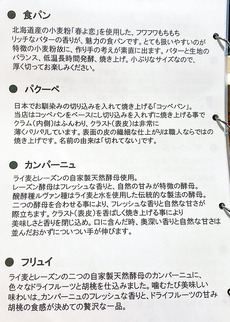 ● 食パン
北海道産の小麦粉「春よ恋」を使用した、フワフワもちもち
リッチなバターの香りが、魅力の食パンです。とても扱いやすいのが
特徴の小麦粉故に、作り手の考えが素直に出ます。バターと生地の
バランス、低温長時間発酵、焼き上げ。小ぶりなサイズなので、
厚く切ってお楽しみください。
● パクーペ
日本でお馴染みの切り込みを入れて焼き上げる「コッペパン」。
当店はコッペパンをベースにし切り込みを入れずに焼き上げる事で
クラム(内側)はふんわり、クラスト(表皮)は非常に
薄くパリパリしています。表面の皮の繊細な仕上がりは職人ならではの
焼き上げです。名前の由来は「切れてない」です。
● カンパーニュ
ライ麦とレーズンの自家製天然酵母使用。
レーズン酵母はフレッシュな香りと、自然の甘みが特徴の酵母。
醗酵種ルヴァン種はライ麦と水を使用した伝統的な製法の酵母。
二つの酵母を合わせる事により、フレッシュな香りと自然な甘さが
際立ちます。クラスト(表皮)を香ばしく焼き上げる事により
美味しさと香りを閉じ込め。口に含んだ時、奥深い香りと自然な甘さは
並んだおかずにもついつい手が伸びます。
● フリュイ
ライ麦とレーズンの二つの自家製天然酵母のカンパーニュに、
色々なドライフルーツと胡桃を仕込みました。噛むたび美味しい
味わいは、カンパーニュのフレッシュな香りと、ドライフルーツの甘み
胡桃の食感が決めての贅沢な一品。